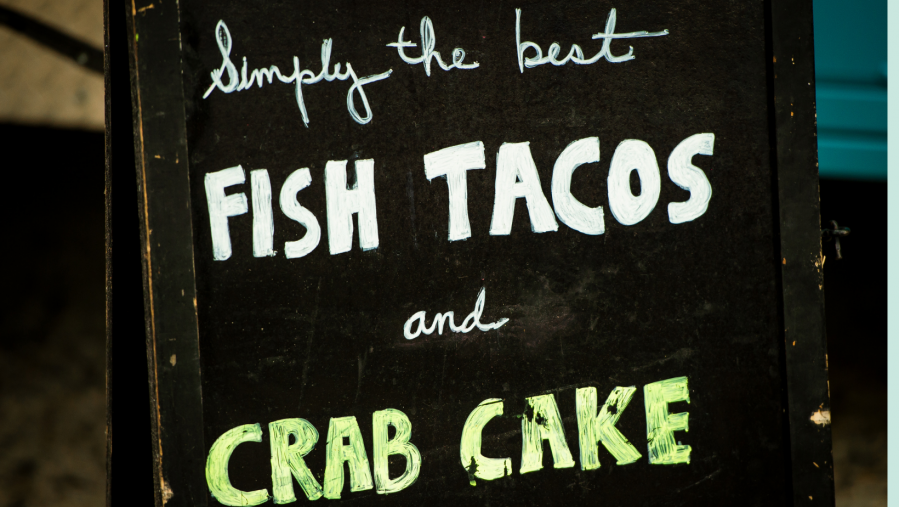 Simply the best
FISH TACOS
and
CRAB CAKE